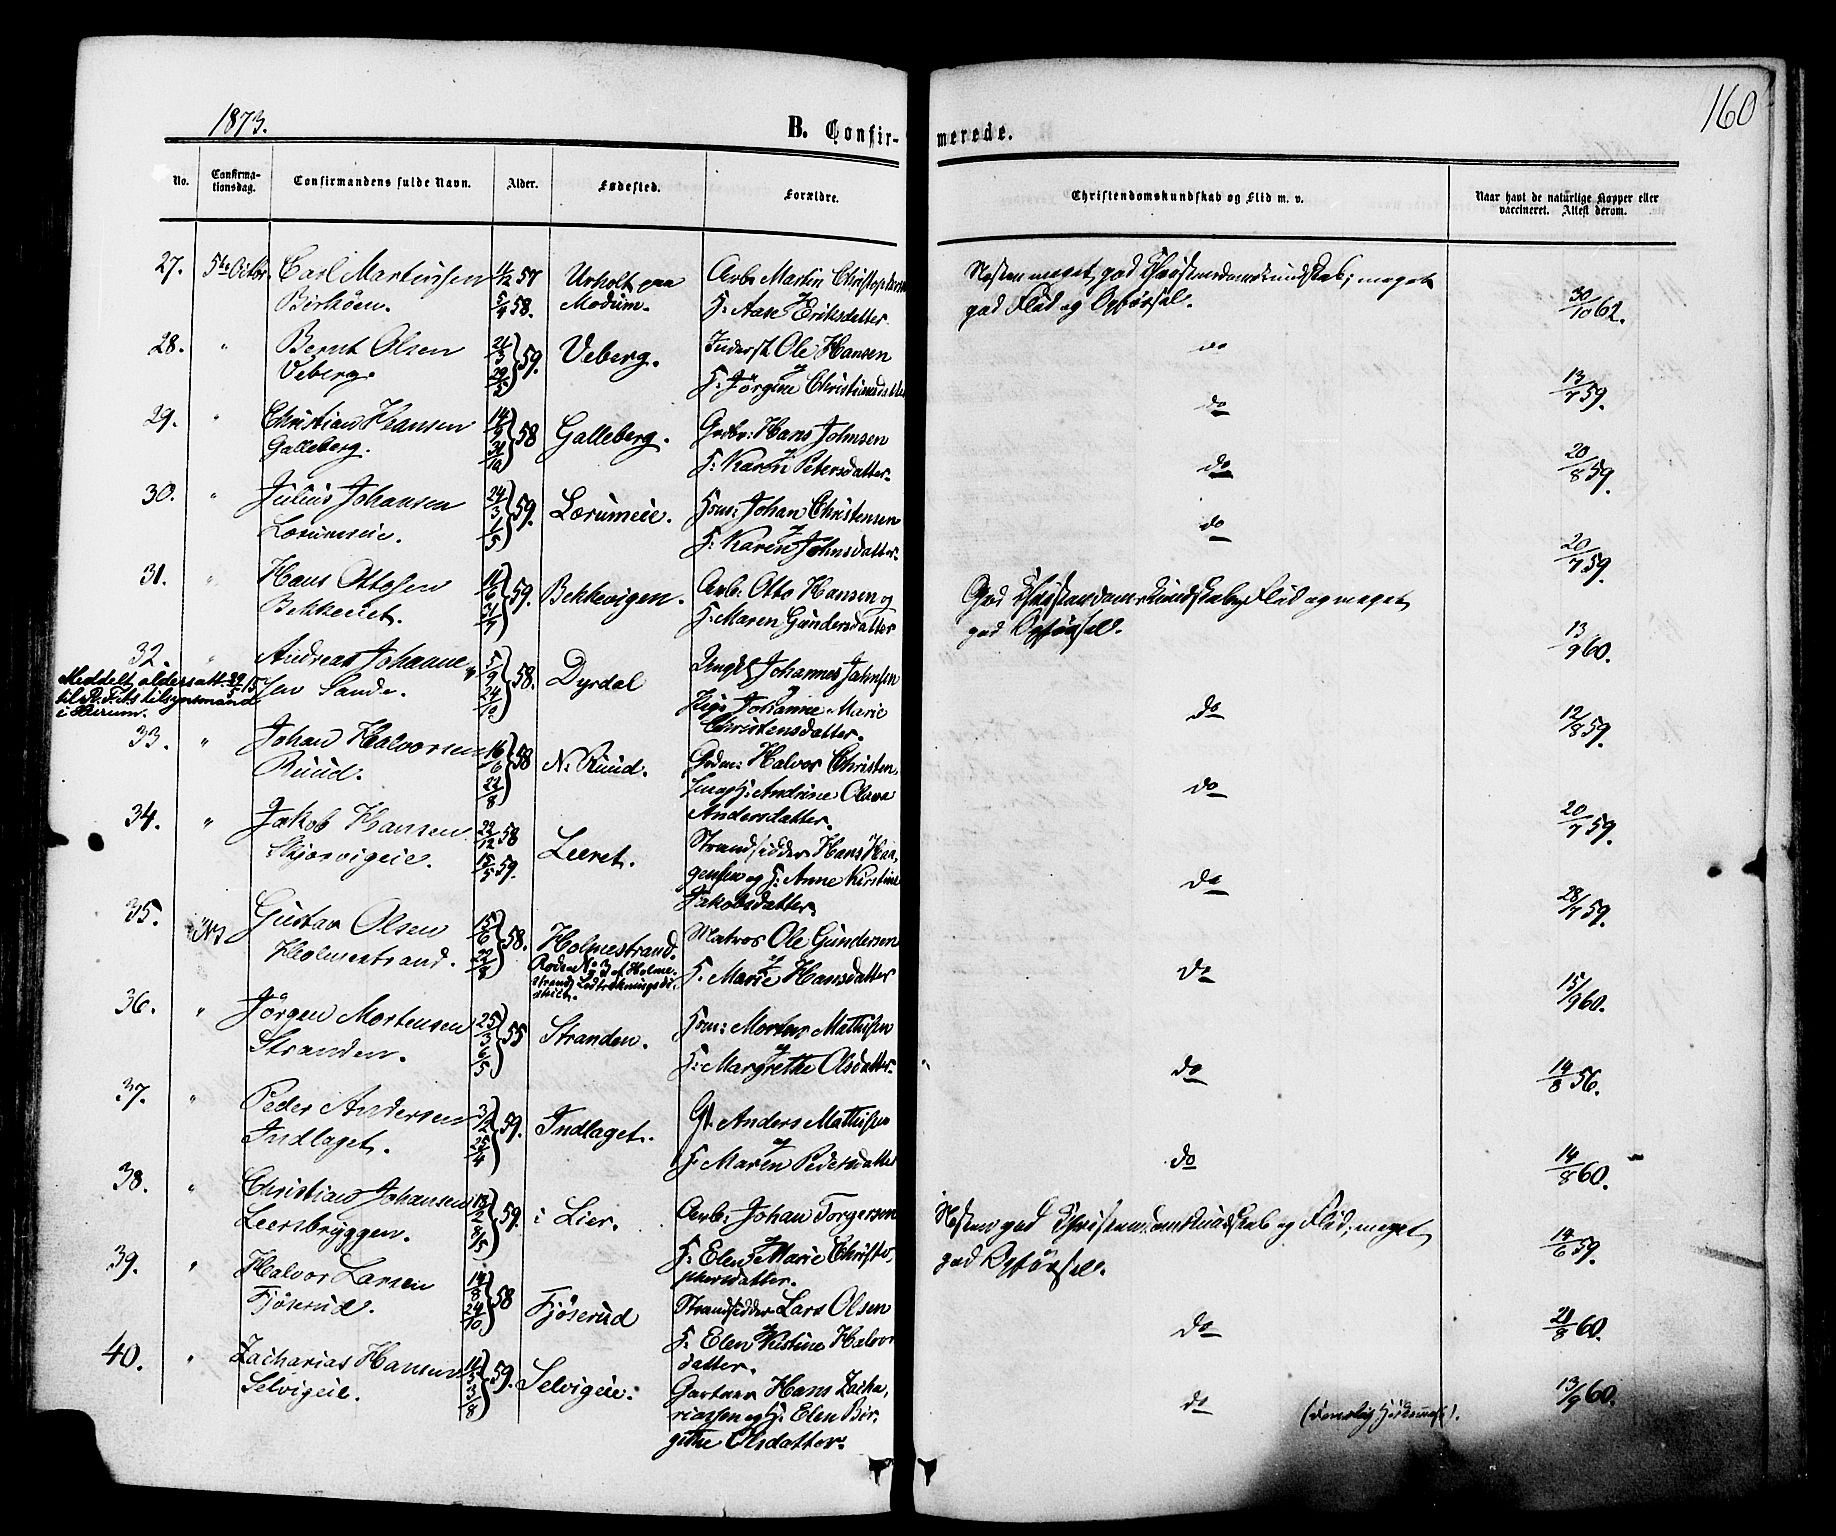 1873.
B. Confir-
merede.
160
No.
Confirma-
tionsdag.
Confirmandens fulde Navn.
Alder.
Fødested.
Forældre.
Christendomskundskab og Flid m. v.
Naar havt de naturlige Kopper eller
vaccineret. Attest derom.
27. 5te Octbr. Carl Martinsen 11/12 57 Urholt paa Arb: Martin Christophersen
5/4 58. Modum. og
F: Aase Eriksdatter
Nesten meget god Christendomskundskab; meget
god Flid og Opførsel.
30/10 62.
28. " Bernt Olsen 21/3 59. Veberg. Inderst Ole Hansen
Veberg. 29/5 og
F: Jørgine Christiansdatter
do
13/7 59.
29. " Christian Hansen 14/9 58 Galleberg. Grdbr: Hans Johnsen
Galleberg. 31/10 og
F: Karen Petersdatter.
do
20/8 59.
30. " Julius Johansen 24/3 59. Lørumeie. Hsm: Johan Christensen
Lørumeie. 1/5 og
F: Karen Johnsdatter.
do
do
20/7 59.
31. " Hans Ottosen 11/6 59. Bekkevigen. Arb: Otto Hansen og
31/7 F: Maren Gundersdatter
God Christendomskundskab, Flid og meget
god Opførsel.
13/9 60.
32. " Andreas Johanne- 5/9 58. Dyrdal Ungk: Johannes Jahnsen
sen Sande. 24/10 og
Pige Johanne Marie
Christensdatter.
Meddelt aldersatt.
tilsynsmand
do
12/8 59.
33. " Johan Halvorsen 16/6 58 N: Ruud. Grdm: Halvor Christen,
Ruud. 22/8 F: Andrine Olava
Andersdatter.
do
20/7 59.
34. " Jakob Hansen 22/12 58 Leeret. Strandsidder Hans Haa,
Skjørvigeie. 15/5 59. gensen og F: Anne Kirstine
Jakobsdatter.
do
28/7 59.
35. Gustav Olsen 15/6 58. Holmestrand. Matros Ole Gundersen
Holmestrand. 22/8 Rode No 3 af Holme-
og
F: Marie Hansdatter
do
15/9 60.
36. " Jørgen Mortensen 25/3 55 Stranden. Hsm: Morten Mathisen
Stranden. 6/5 og
F: Margrethe Olsdatter.
do
14/8 56.
37. " Peder Andersen 3/2 59. Indlaget. Gl. Anders Mathisen
Indlaget. 25/4 og
F: Maren Pedersdatter
do
14/8 60.
38. " Christian Johansen 13/2 59. i Lier. Arb: Johan Torgersen
Leersbryggen. 8/5 og
F: Elen Marie Christo,
phersdatter.
Nesten god Christendomskundskab og Flid; meget
god Opførsel.
14/6 59.
39. " Halvor Larsen 14/8 58 Fjøserud Strandsidder Lars Olsen
Fjøserud. 24/10 og
F: Elen Kistine Halvor
datter.
do
20/8 60.
40. " Zacharias Hansen 11/5 59. Selvigeie. Gartner Hans Zacha,
Selvigeie. 3/8 riassen og F: Elen Bir,
githe Olsdatter.
do
13/9 60.